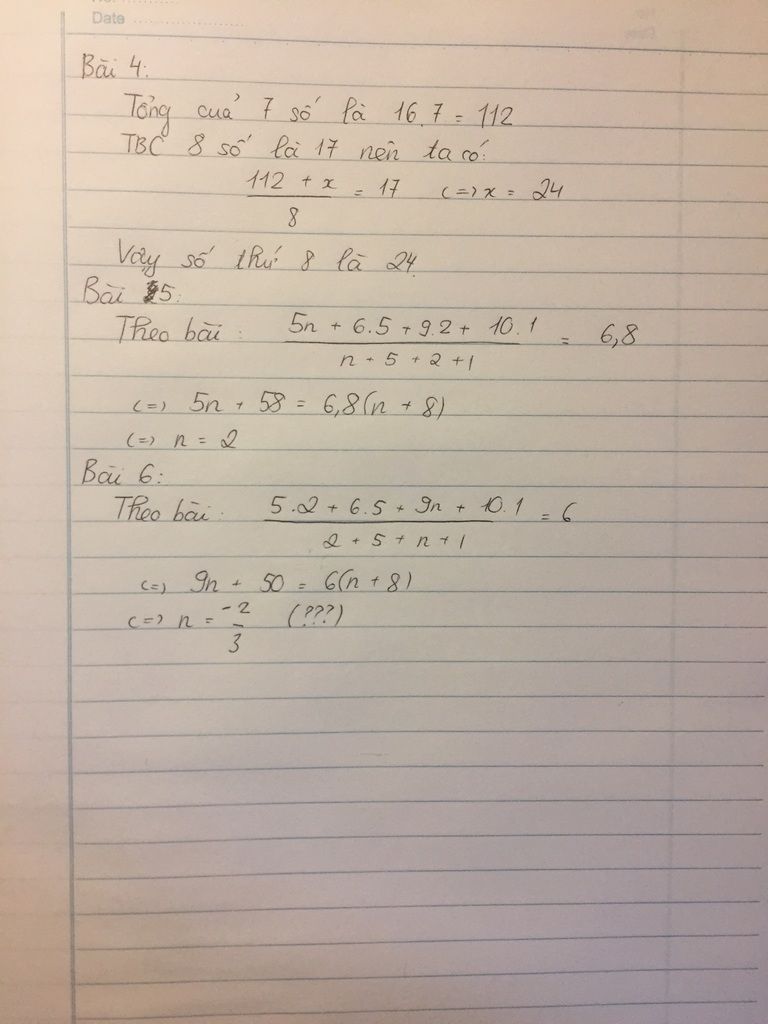 Date
Bài 4:
Tổng của 7 số là 16.7 = 112
TBC 8 số là 17 nên ta có:
112 + x
8
= 17 <=> x = 24
Vậy số thứ 8 là 24.
Bài 5:
Theo bài: 5n + 6.5 + 9.2 + 10.1
n + 5 + 2 + 1
= 6,8
<=> 5n + 58 = 6,8(n + 8)
<=> n = 2
Bài 6:
Theo bài: 5.2 + 6.5 + 9n + 10.1
2 + 5 + n + 1
= 6
<=> 9n + 50 = 6(n + 8)
<=> n = -2
3
(???)